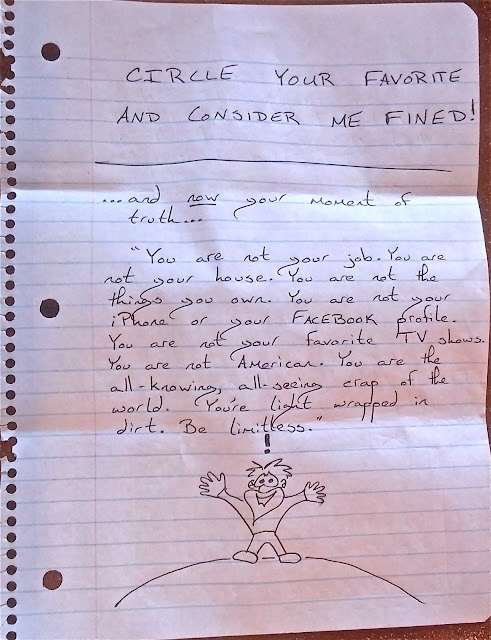 CIRCLE YOUR FAVORITE
AND CONSIDER ME FINED!
...and now your moment of
truth...
"You are not your job. You are
not your house. You are not the
things you own. You are not your
iPhone or your FACEBOOK profile.
You are not your favorite TV shows.
You are not American. You are the
all-knowing, all-seeing crap of the
world. You're light wrapped in
dirt. Be limitless."
!